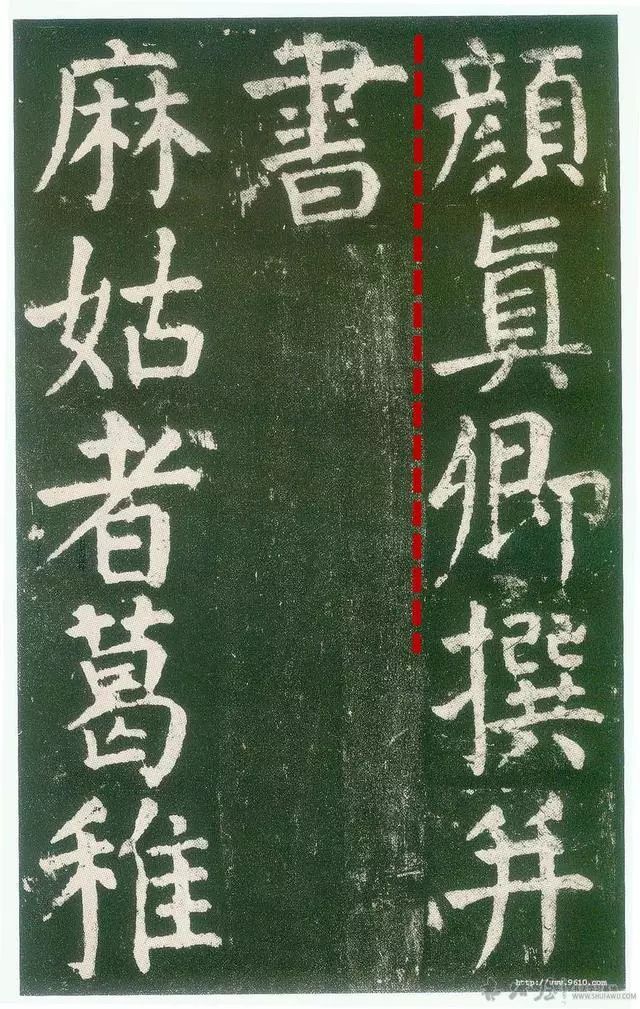 顔真卿撰并
書
麻姑者葛稚
http://www.9610.com
WWW.SHUFAWU.COM